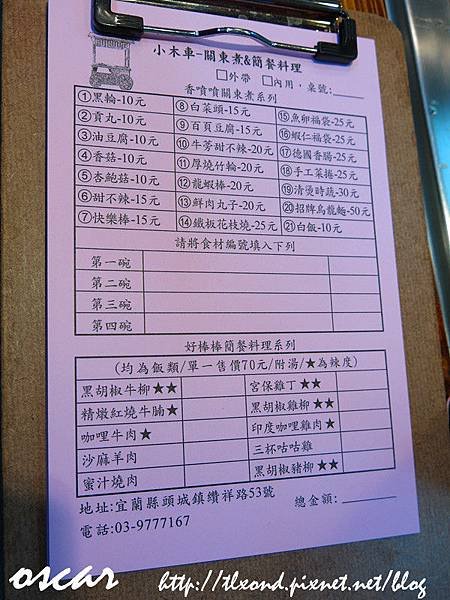 小木車-關東煮&簡餐料理
□外帶 □內用，桌號:
香噴噴關東煮系列
①黑輪-10元 ⑧白菜頭-15元 ⑮魚卵福袋-25元
②貢丸-10元 ⑨百頁豆腐-15元 ⑯蝦仁福袋-25元
③油豆腐-10元 ⑩牛蒡甜不辣-20元 ⑰德國香腸-25元
④香菇-10元 ⑪厚燒竹輪-20元 ⑱手工菜捲-25元
⑤杏鮑菇-10元 ⑫龍蝦棒-20元 ⑲清燙時蔬-30元
⑥甜不辣-15元 ⑬鮮肉丸子-20元 ⑳招牌烏龍麵-50元
⑦快樂棒-15元 ⑭鐵板花枝燒-25元 ㉑白飯-10元
請將食材編號填入下列
第一碗
第二碗
第三碗
第四碗
好棒棒簡餐料理系列
(均為飯類/單一售價70元/附湯/★為辣度)
黑胡椒牛柳★★ 宮保雞丁★★
精燉紅燒牛腩★ 黑胡椒雞柳★★
咖哩牛肉★ 印度咖哩雞肉★
沙麻羊肉 三杯咕咕雞
蜜汁燒肉 黑胡椒豬柳★★
地址:宜蘭縣頭城鎮纘祥路53號 總金額:
電話:03-9777167
oscar http://tlxond.pixnet.net/blog